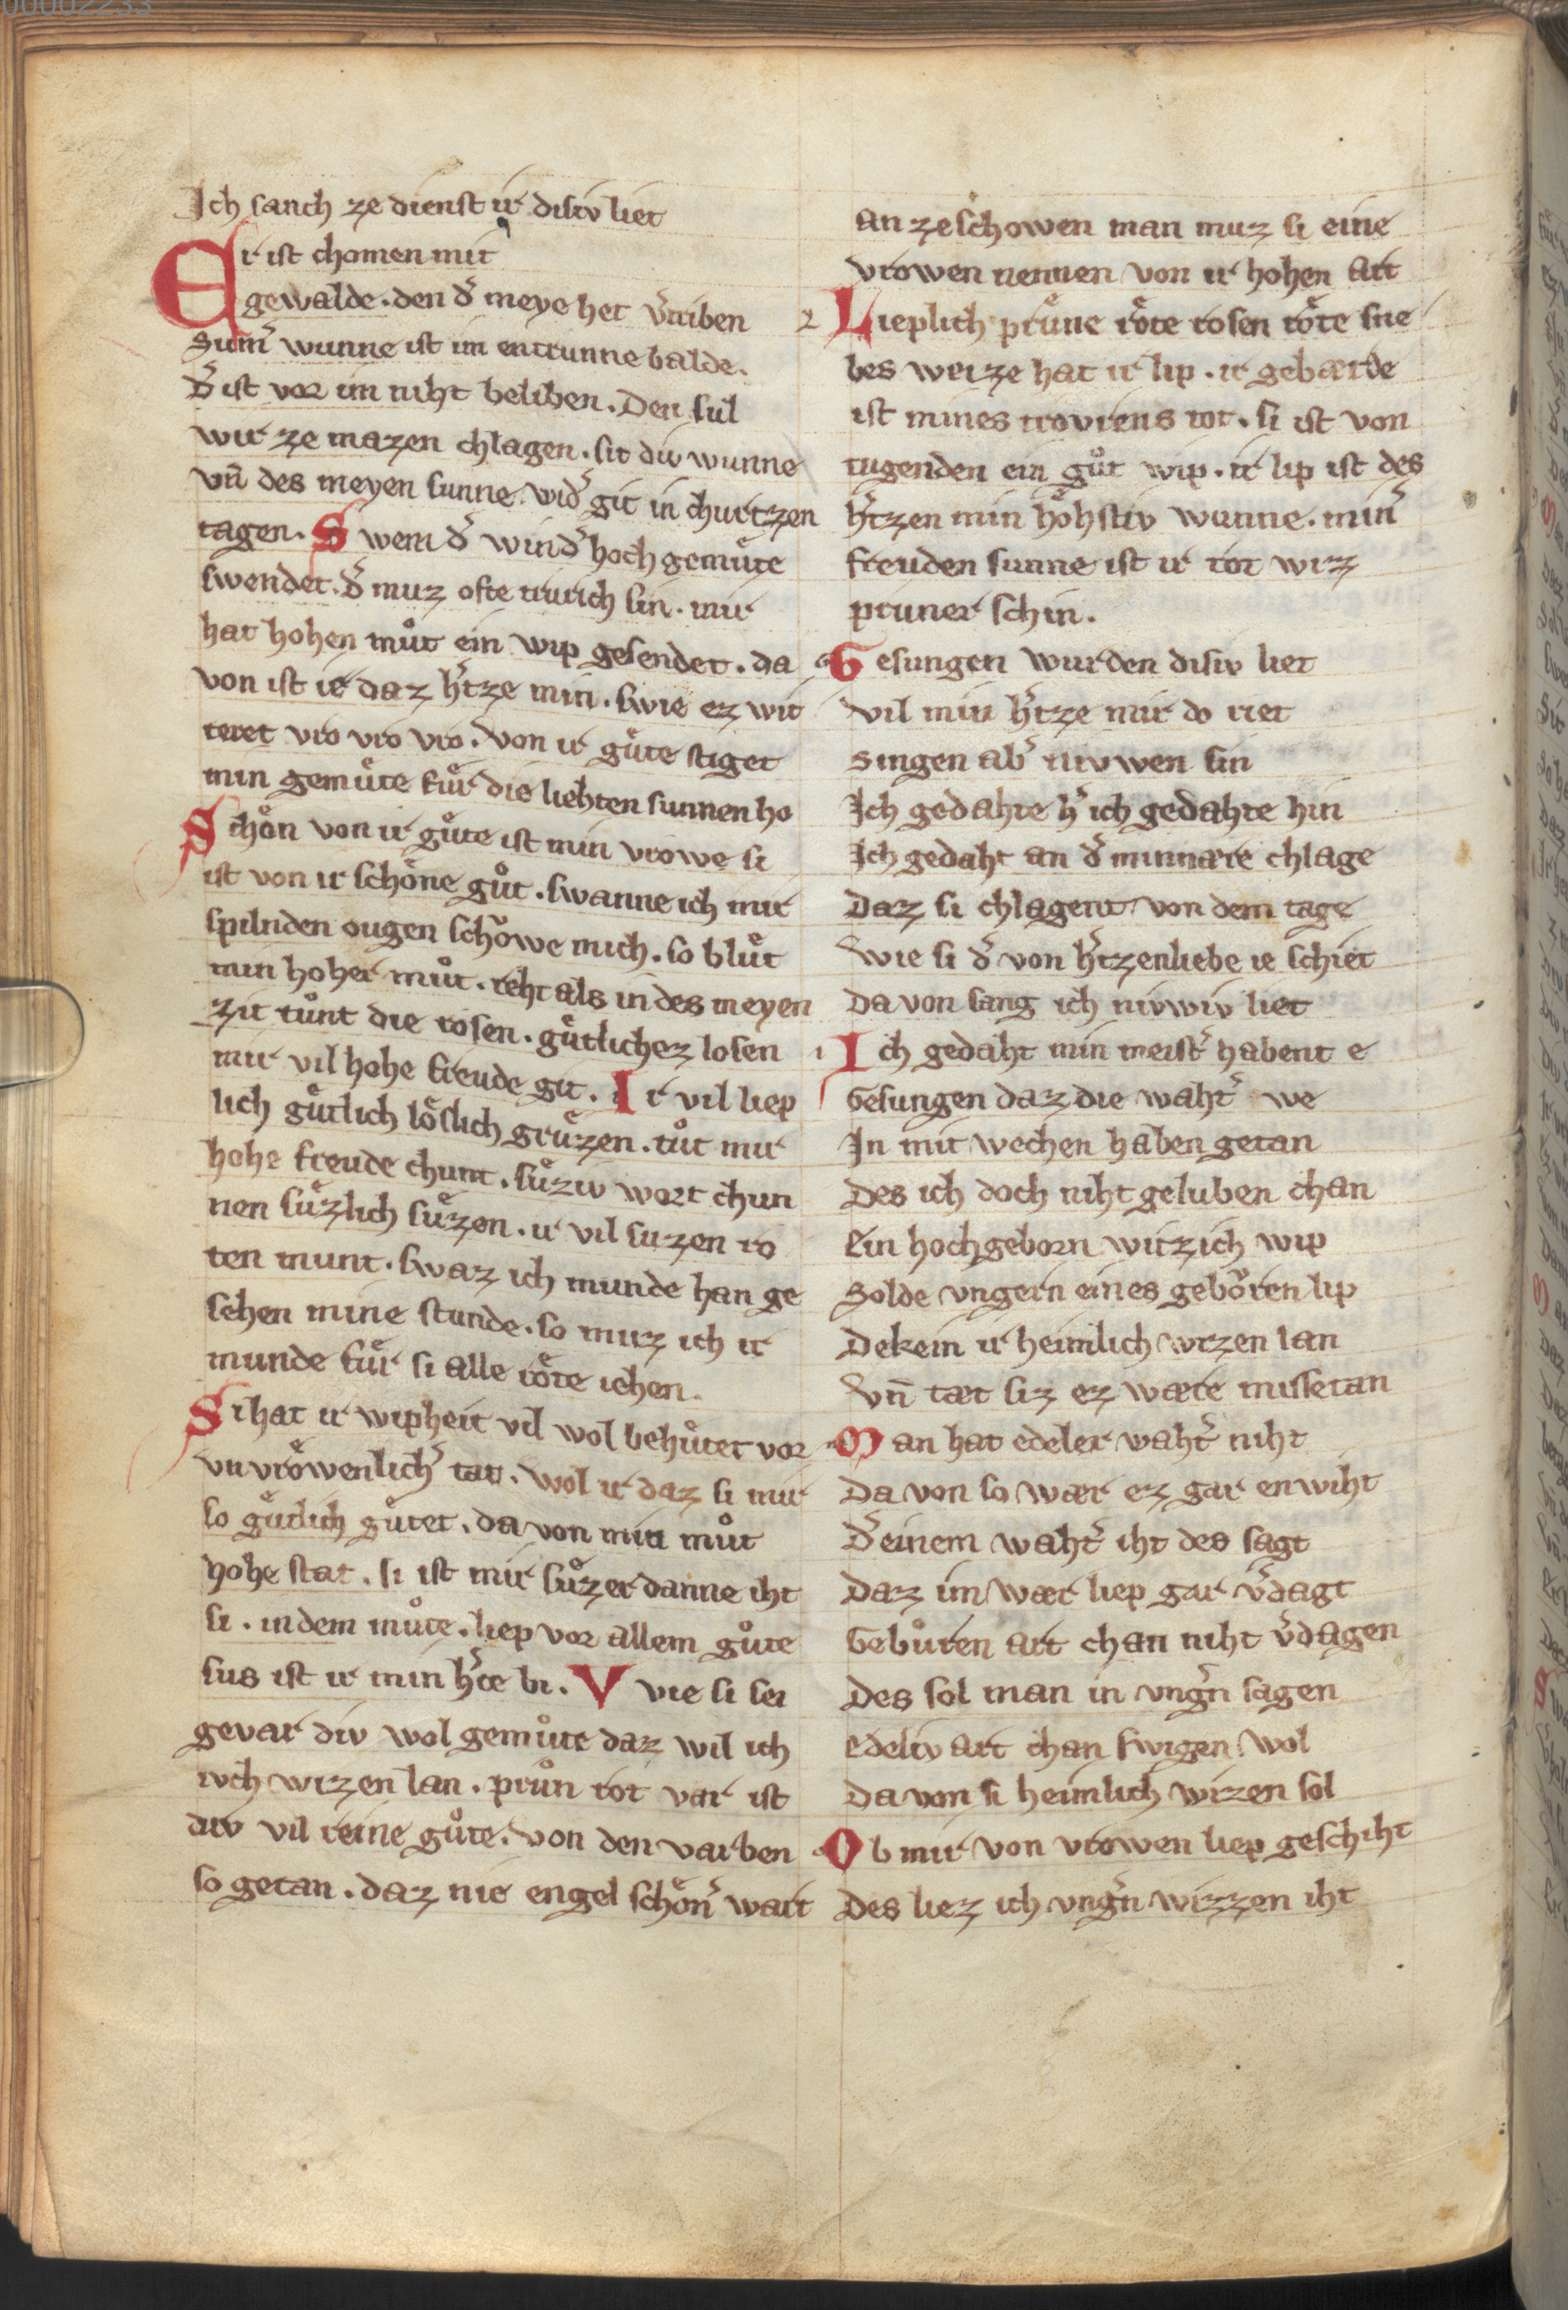 00002233
Ich sanch ze dienst ir disiv liet
Er ist chomen mit
gewalde . den d̉ meye het v̉triben
Sum̉ wunne ist im entrunne balde .
D̉ ist vor im niht beliben . Den sul
wir ze mazen chlagen . sit div wunne
vn̄ des meyen sunne . wid̉ git in churtzen
tagen . Swem d̉ wind̉ hoch gemuͤte
swendet . d̉ muz ofte trurich sin . mir
hat hohen muͦt ein wip gesendet . da
von ist ie daz h̉tze min . swie ez wit
teret vro vro vro . von ir guͤte stiget
min gemuͤte fuͤr die liehten sunnen ho
Schoͤn von ir guͤte ist min vrowe si
ist von ir schoͤne guͦt . swanne ich mit
spilnden ougen schoͮwe mich . so bluͤt
min hoher muͦt . reht als in des meyen
zit tuͦnt die rosen . guͤtlichez losen
mir vil hohe freude git . Ir vil liep
lich guͤtlich loͤslich gruͤzen . tuͦt mir
hohe freude chunt . suͤziv wort chun
nen suͤzlich suͤzen . ir vil suzen ro
ten munt . swaz ich munde han ge
sehen mine stunde . so muz ich ir
munde fuͤr si alle roͤte iehen .
Si hat ir wipheit vil wol behuͤtet vor
vnvroͤwenlich̉ tat . wol ir daz si mir
so guͤtlich guͤtet . da von min muͦt
hohe stat . si ist mir suͤzer danne iht
si . in dem muͦte . liep vor allem guͦte
sus ist ir min h̉ce bi . Vvie si sei
gevar div wol gemuͦte daz wil ich
ivch wizen lan . pruͦn rot var ist
div vil reine guͦte . von den varben
so getan . daz nie engel schoͤn̉ wart
an ze schowen man muz si eine
vrowen nennen von ir hohen art
2 Lieplich pruͤne roͤte rosen roͤte sne
bes weize hat ir lip . ir gebærde
ist mines trovrens tot . si ist von
tugenden ein guͦt wip . ir lip ist des
h̉tzen min hoͤhstiv wunne . min̉
freuden sunne ist ir rot wiz
pruner schin .
Gesungen wurden disiv liet
vil min h̉tze mir do riet
singen ab̉ nivwen sin
Ich gedahte h̉ ich gedahte hin
Ich gedaht an d̉ minnære chlage
Daz si chlagent von dem tage
Wie si d̉ von h̉tzenliebe ie schiet
Da von sang ich nivwiv liet
1 Ich gedaht min meist̉ habent e
Gesungen daz die waht̉ we
In mit wechen haben getan
Des ich doch niht geluben chan
Ein hochgeborn witzich wip
Solde vngern eines geboͮren lip
Dekein ir heimlich wizen lan
Vn̄ tæt siz ez wære missetan
Man hat edeler waht̉ niht
Da von so wær ez gar enwiht
D̉ einem waht̉ iht des sagt
Daz im wær liep gar v̉dagt
Gebuͦren art chan niht v̉dagen
Des sol man in vng̉n sagen
Edeliv art chan swigen wol
Da von si heimlich wizen sol
Ob mir von vrowen liep geschiht
Des liez ich vng̉n wizzen iht